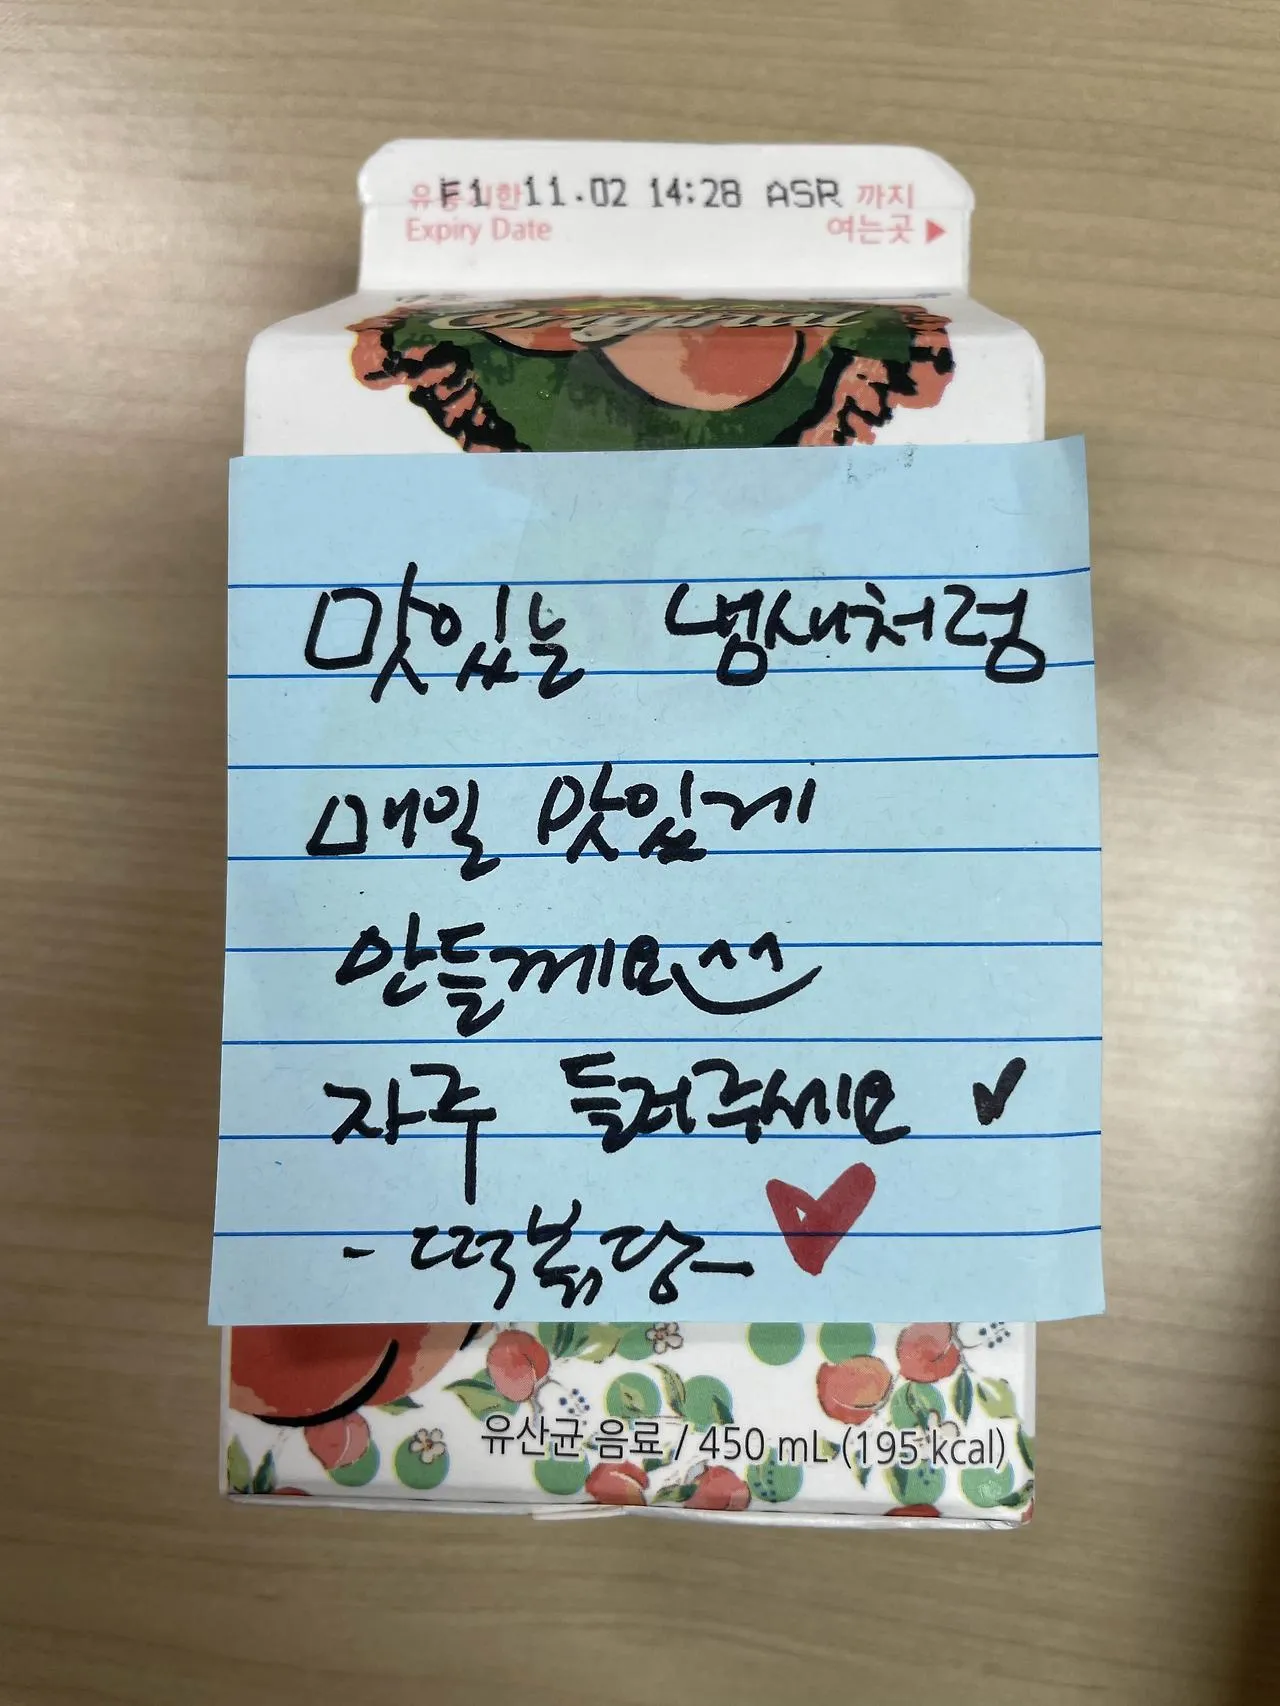 유통기한 F1 11.02 14:28 ASR 까지
Expiry Date 여는곳 ▶
Original
맛있는 냄새처럼
매일 맛있게
만들께요^^
자주 들려주세요 ✓
- 떡볶당 - ♥
유산균 음료 / 450 mL (195 kcal)